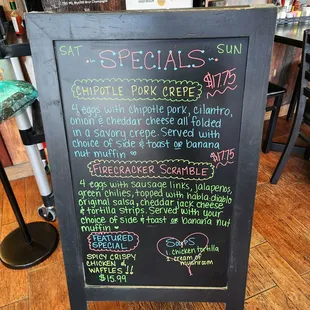 SAT SUN
SPECIALS
CHIPOTLE PORK CREPE
$17.75
4 eggs with chipotle pork, cilantro,
onion & cheddar cheese all folded
in a savory crepe. Served with
choice of side & toast or banana
nut muffin
$17.75
FIRECRACKER SCRAMBLE
4 eggs with sausage links, jalapenos,
green chilies, topped with habla diablo
original salsa, cheddar jack cheese
& tortilla strips. Served with your
choice of side & toast or banana nut
muffin
FEATURED
SPECIAL
SPICY CRISPY
CHICKEN &
WAFFLES
$15.99
Soups
1. chicken tortilla
2. cream of
mushroom